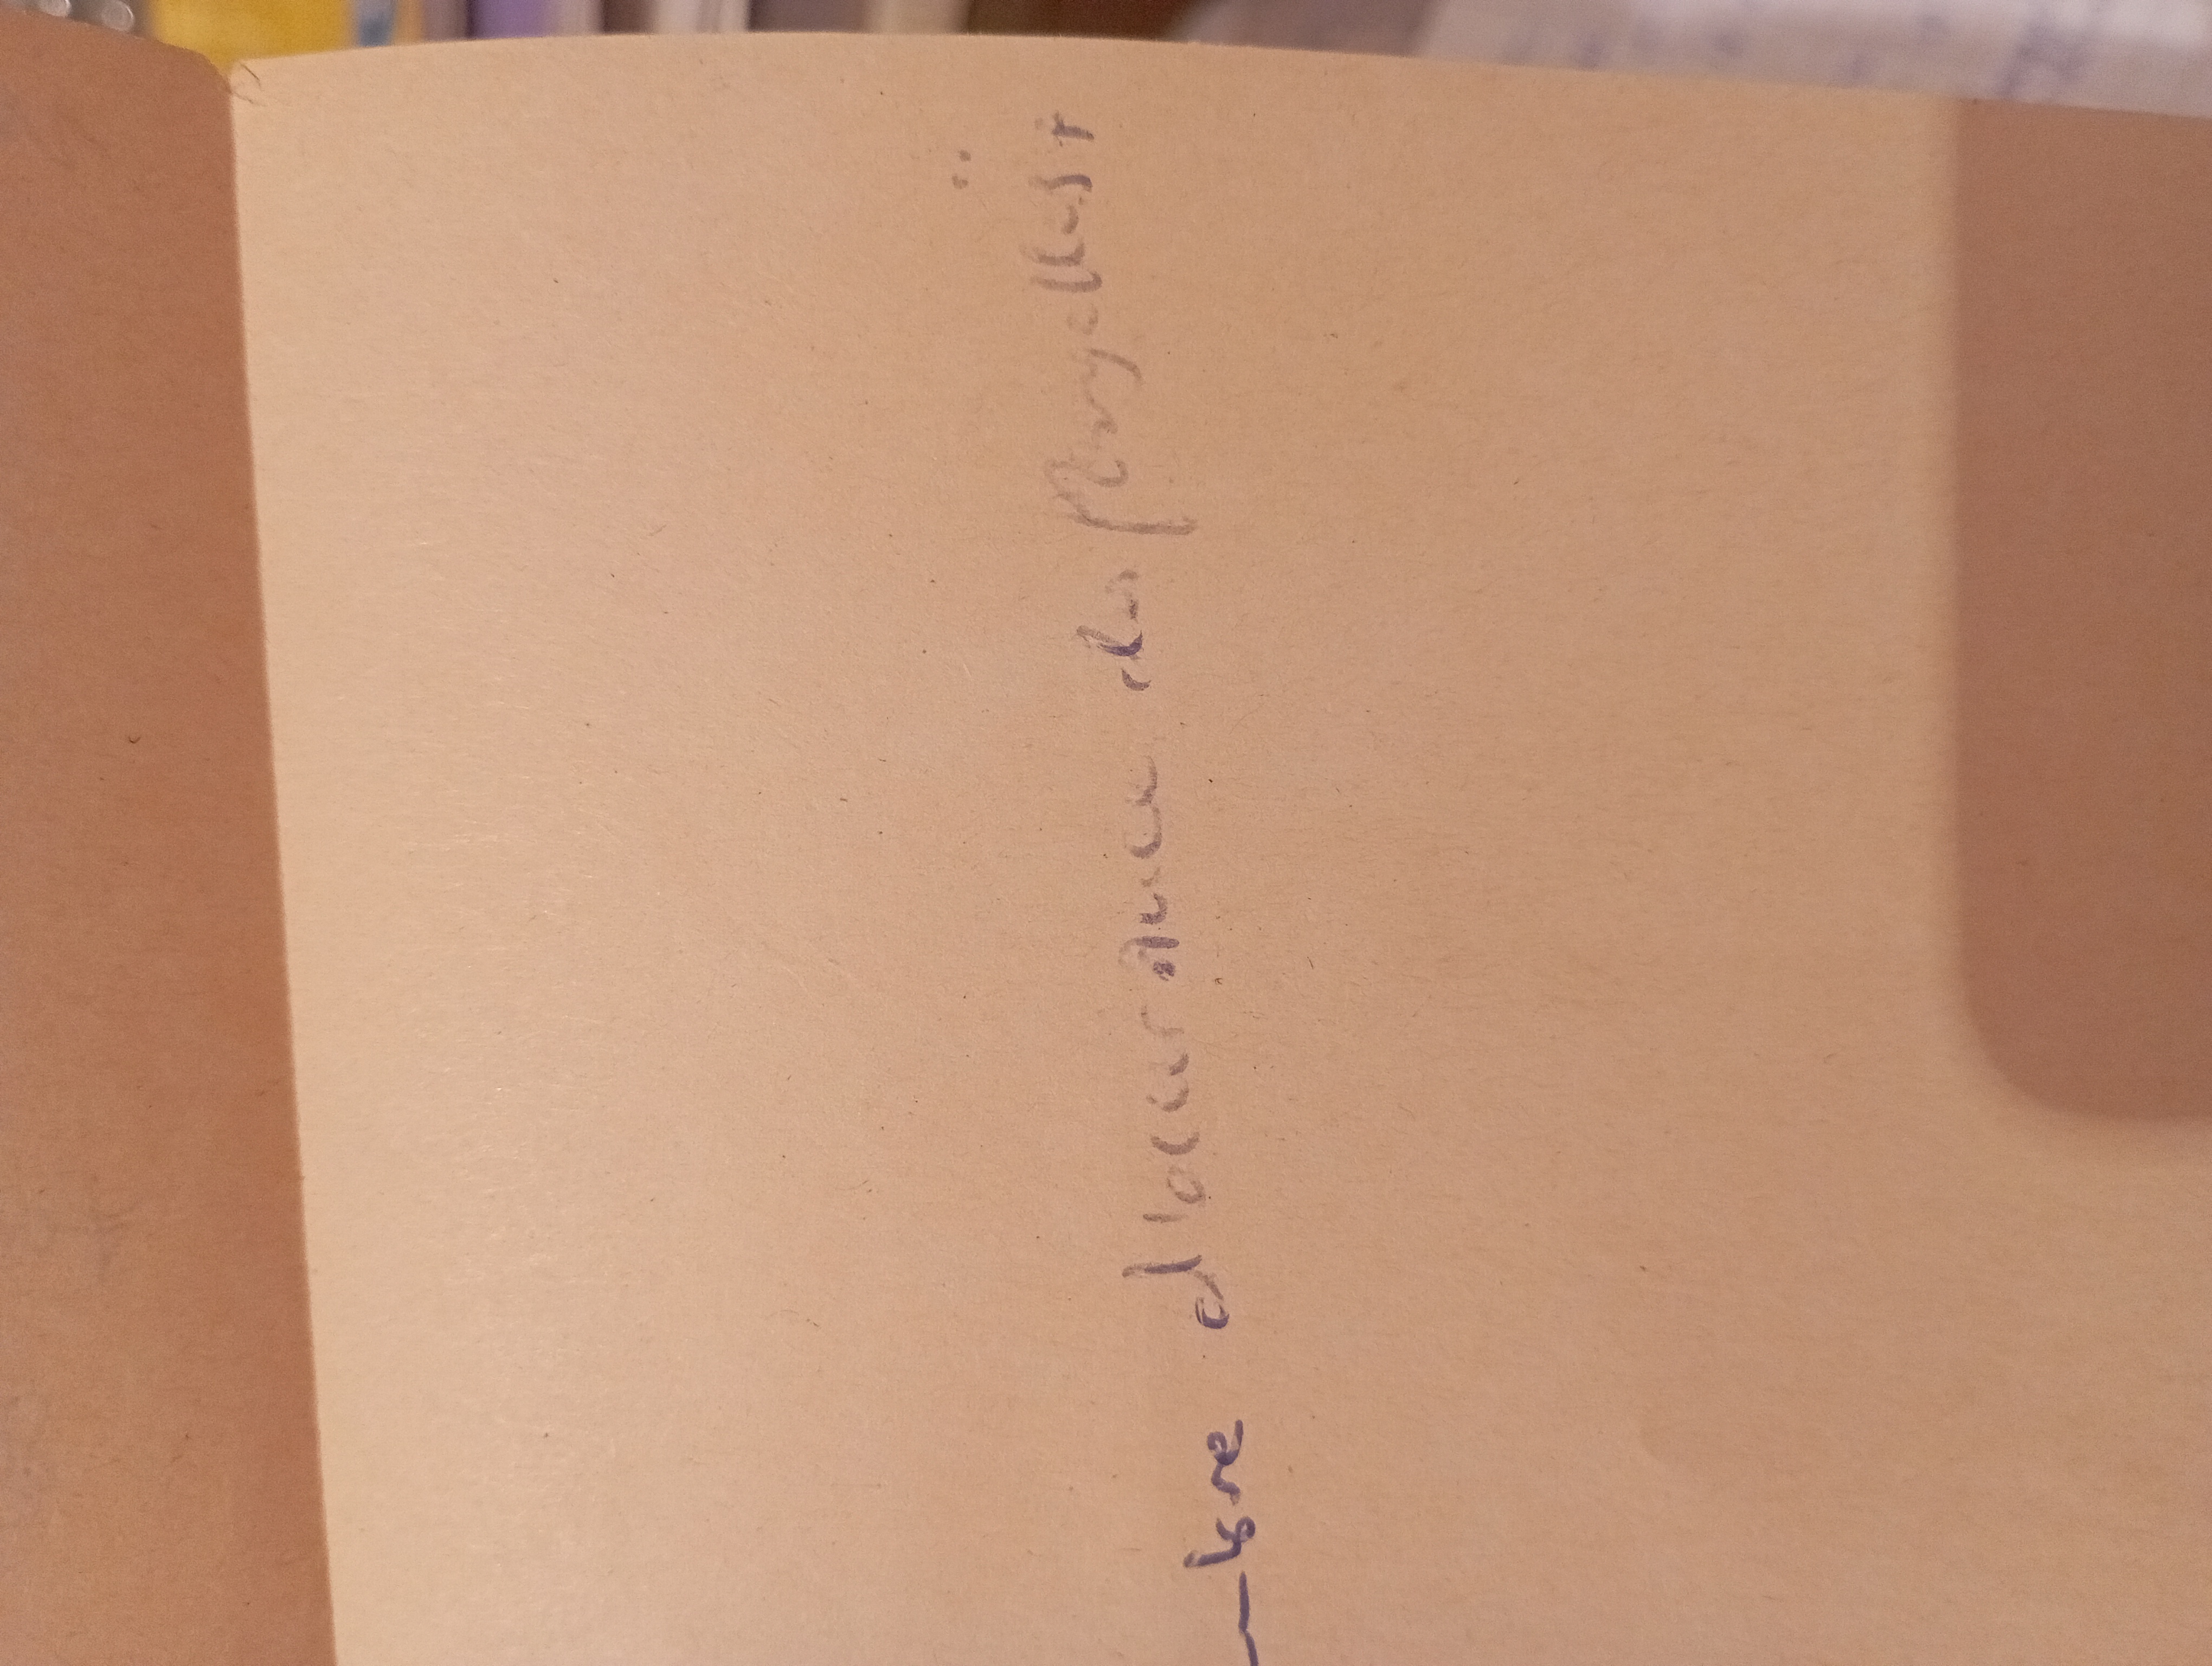 mbre d'occurence des flagelles +